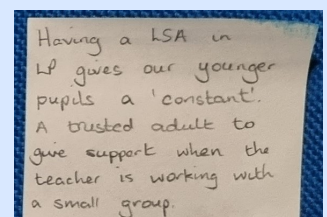 Having a LSA in
LP gives our younger
pupils a 'constant'.
A trusted adult to
give support when the
teacher is working with
a small group.